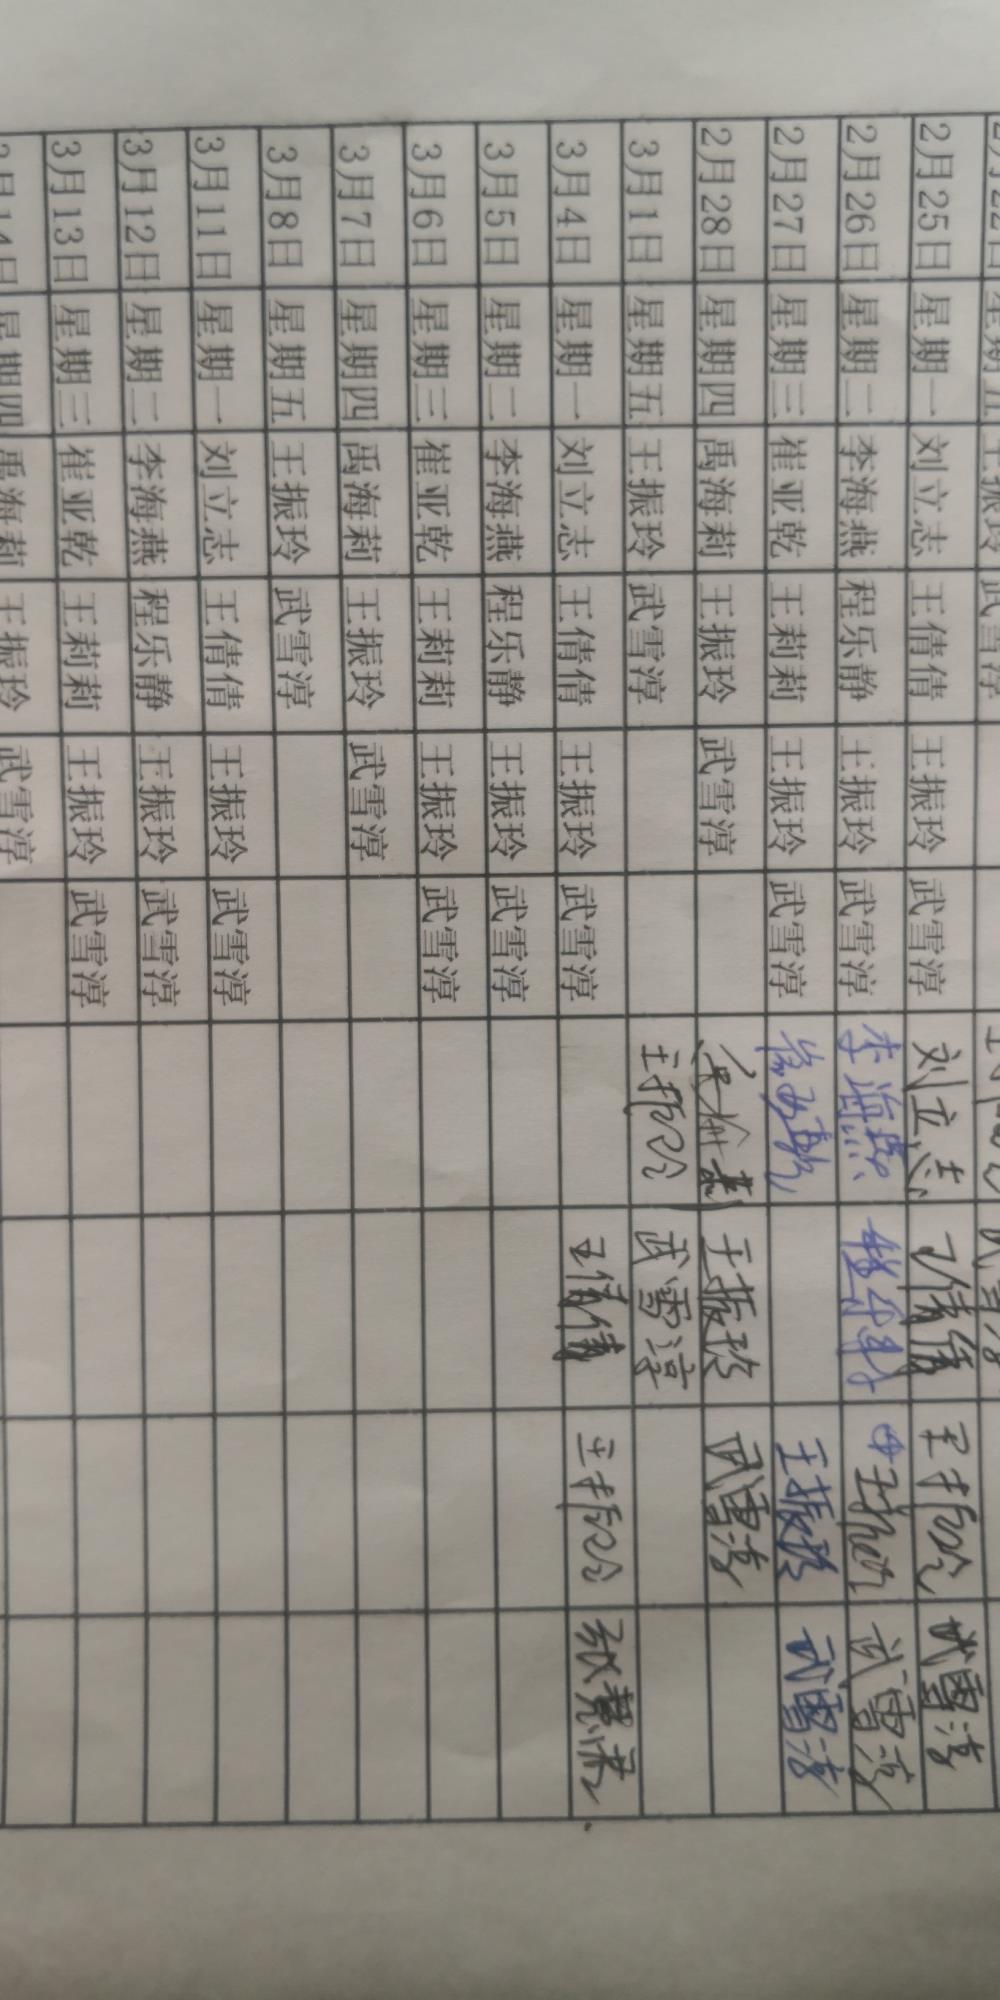 星期五 王振玲 武雪淳
2月25日 星期一 刘立志 王倩倩 王振玲 武雪淳 刘立志 王倩倩 王振玲 武雪淳
2月26日 星期二 李海燕 程乐静 王振玲 武雪淳 李海燕 程乐静 王振玲 武雪淳
2月27日 星期三 崔亚乾 王莉莉 王振玲 武雪淳 崔亚乾 王振玲 武雪淳
2月28日 星期四 禹海莉 王振玲 武雪淳 王振玲 武雪淳
3月1日 星期五 王振玲 武雪淳 王振玲 武雪淳
3月4日 星期一 刘立志 王倩倩 王振玲 武雪淳 王倩倩 王振玲
3月5日 星期二 李海燕 程乐静 王振玲 武雪淳
3月6日 星期三 崔亚乾 王莉莉 王振玲 武雪淳
3月7日 星期四 禹海莉 王振玲 武雪淳
3月8日 星期五 王振玲 武雪淳
3月11日 星期一 刘立志 王倩倩 王振玲 武雪淳
3月12日 星期二 李海燕 程乐静 王振玲 武雪淳
3月13日 星期三 崔亚乾 王莉莉 王振玲 武雪淳
3月14日 星期四 禹海莉 王振玲 武雪淳